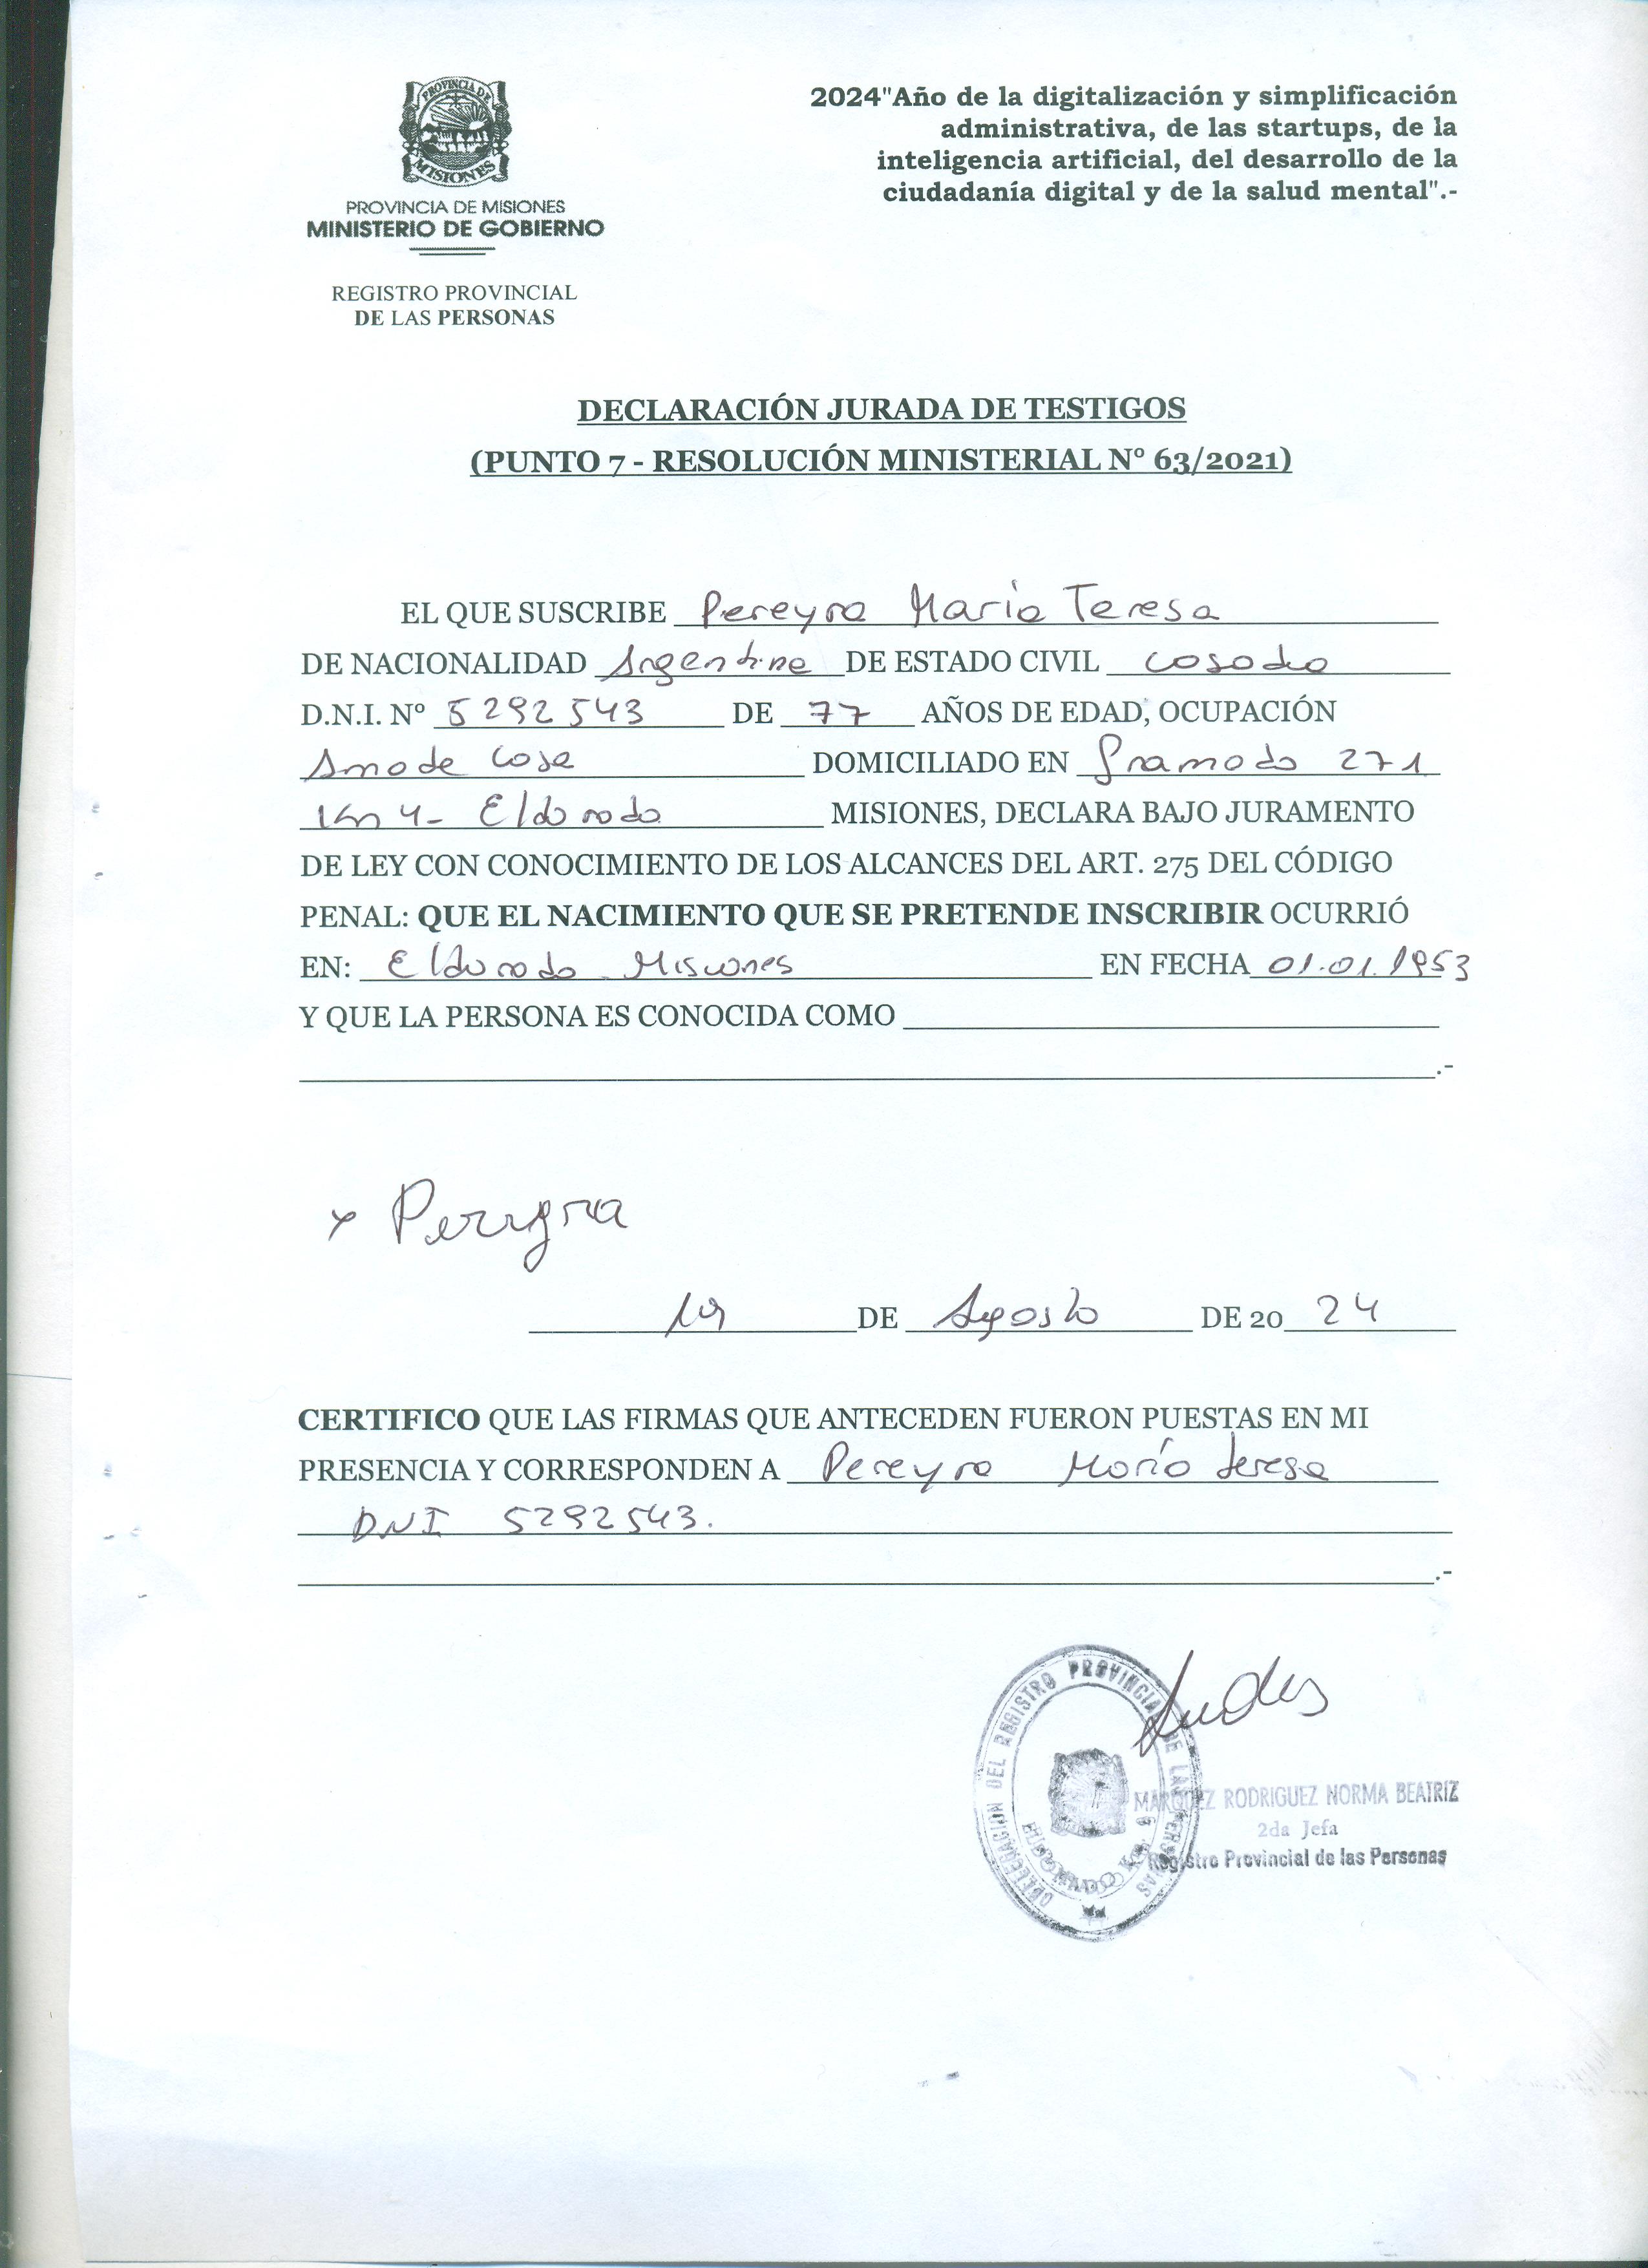 PROVINCIA DE
MISIONES
PROVINCIA DE MISIONES
MINISTERIO DE GOBIERNO
REGISTRO PROVINCIAL
DE LAS PERSONAS
2024"Año de la digitalización y simplificación
administrativa, de las startups, de la
inteligencia artificial, del desarrollo de la
ciudadanía digital y de la salud mental".-
DECLARACIÓN JURADA DE TESTIGOS
(PUNTO 7 - RESOLUCIÓN MINISTERIAL N° 63/2021)
EL QUE SUSCRIBE Pereyra María Teresa
DE NACIONALIDAD Argentina DE ESTADO CIVIL casada
D.N.I. N° 5292543 DE 77 AÑOS DE EDAD, OCUPACIÓN
Ama de casa DOMICILIADO EN Gramado 271
Km 4- Eldorado MISIONES, DECLARA BAJO JURAMENTO
DE LEY CON CONOCIMIENTO DE LOS ALCANCES DEL ART. 275 DEL CÓDIGO
PENAL: QUE EL NACIMIENTO QUE SE PRETENDE INSCRIBIR OCURRIÓ
EN: Eldorado Misiones EN FECHA 01.01.1953
Y QUE LA PERSONA ES CONOCIDA COMO
.-
x Pereyra
19 DE Agosto DE 20 24
CERTIFICO QUE LAS FIRMAS QUE ANTECEDEN FUERON PUESTAS EN MI
PRESENCIA Y CORRESPONDEN A Pereyra María Teresa
DNI 5292543.
.-
DELEGACION DEL REGISTRO PROVINCIAL DE LAS PERSONAS
ELDORADO
MARQUEZ RODRIGUEZ NORMA BEATRIZ
2da Jefa
Registro Provincial de las Personas